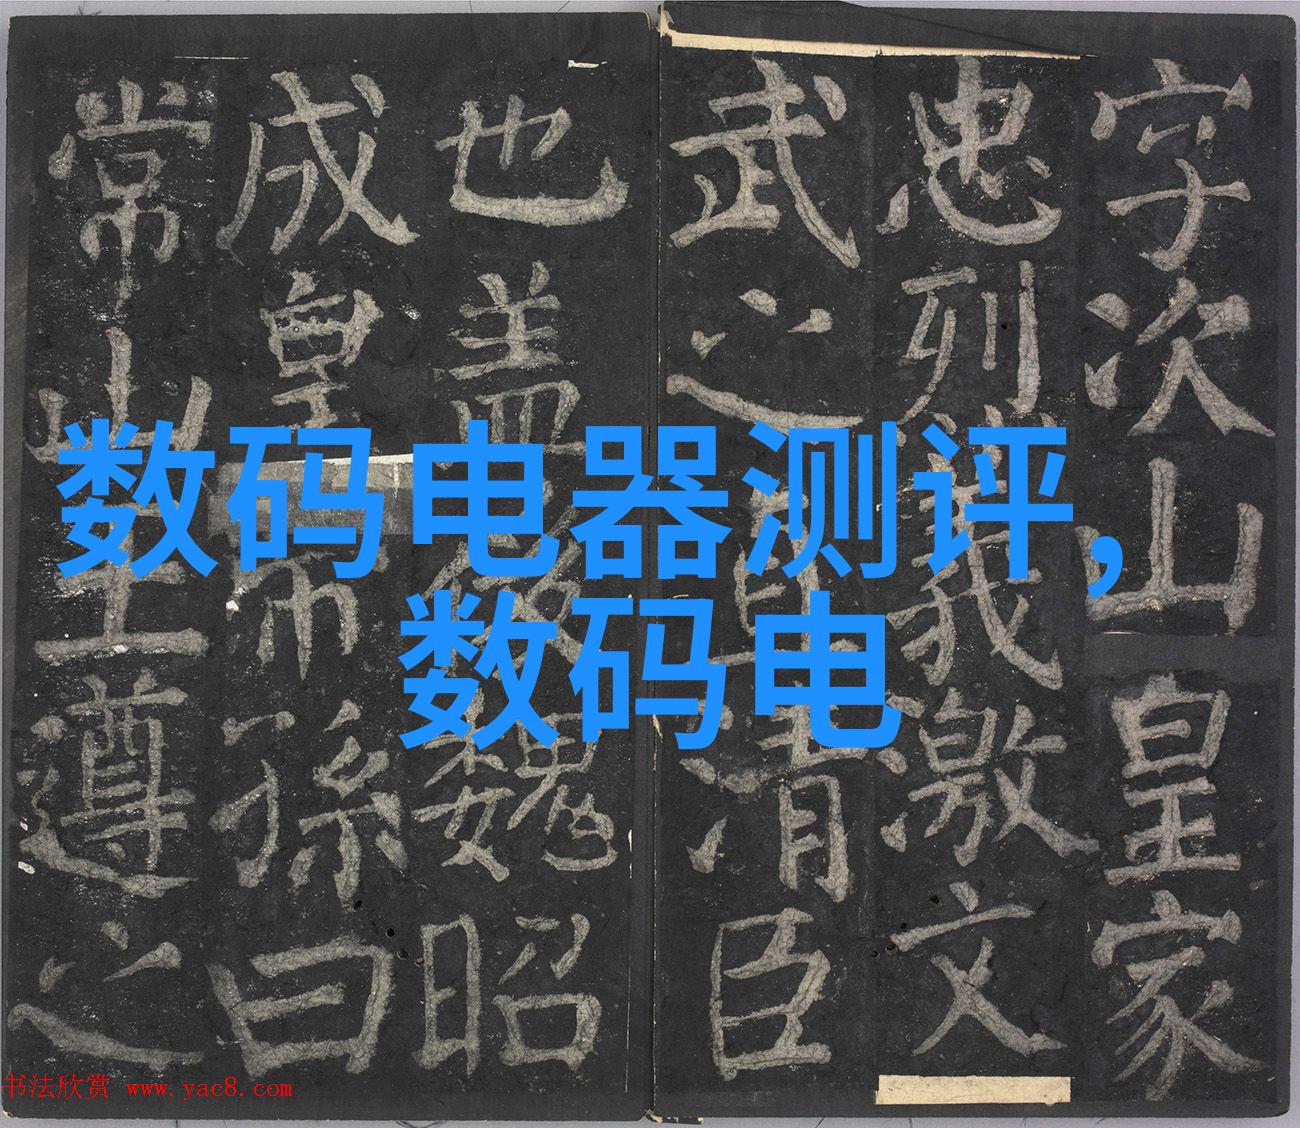 字次山皇家
忠烈義激文
武之直清臣
也盖後魏昭
成皇帝孫曰
常山王遵之
数码电器测评，
数码电
书法欣赏 www.yac8.com